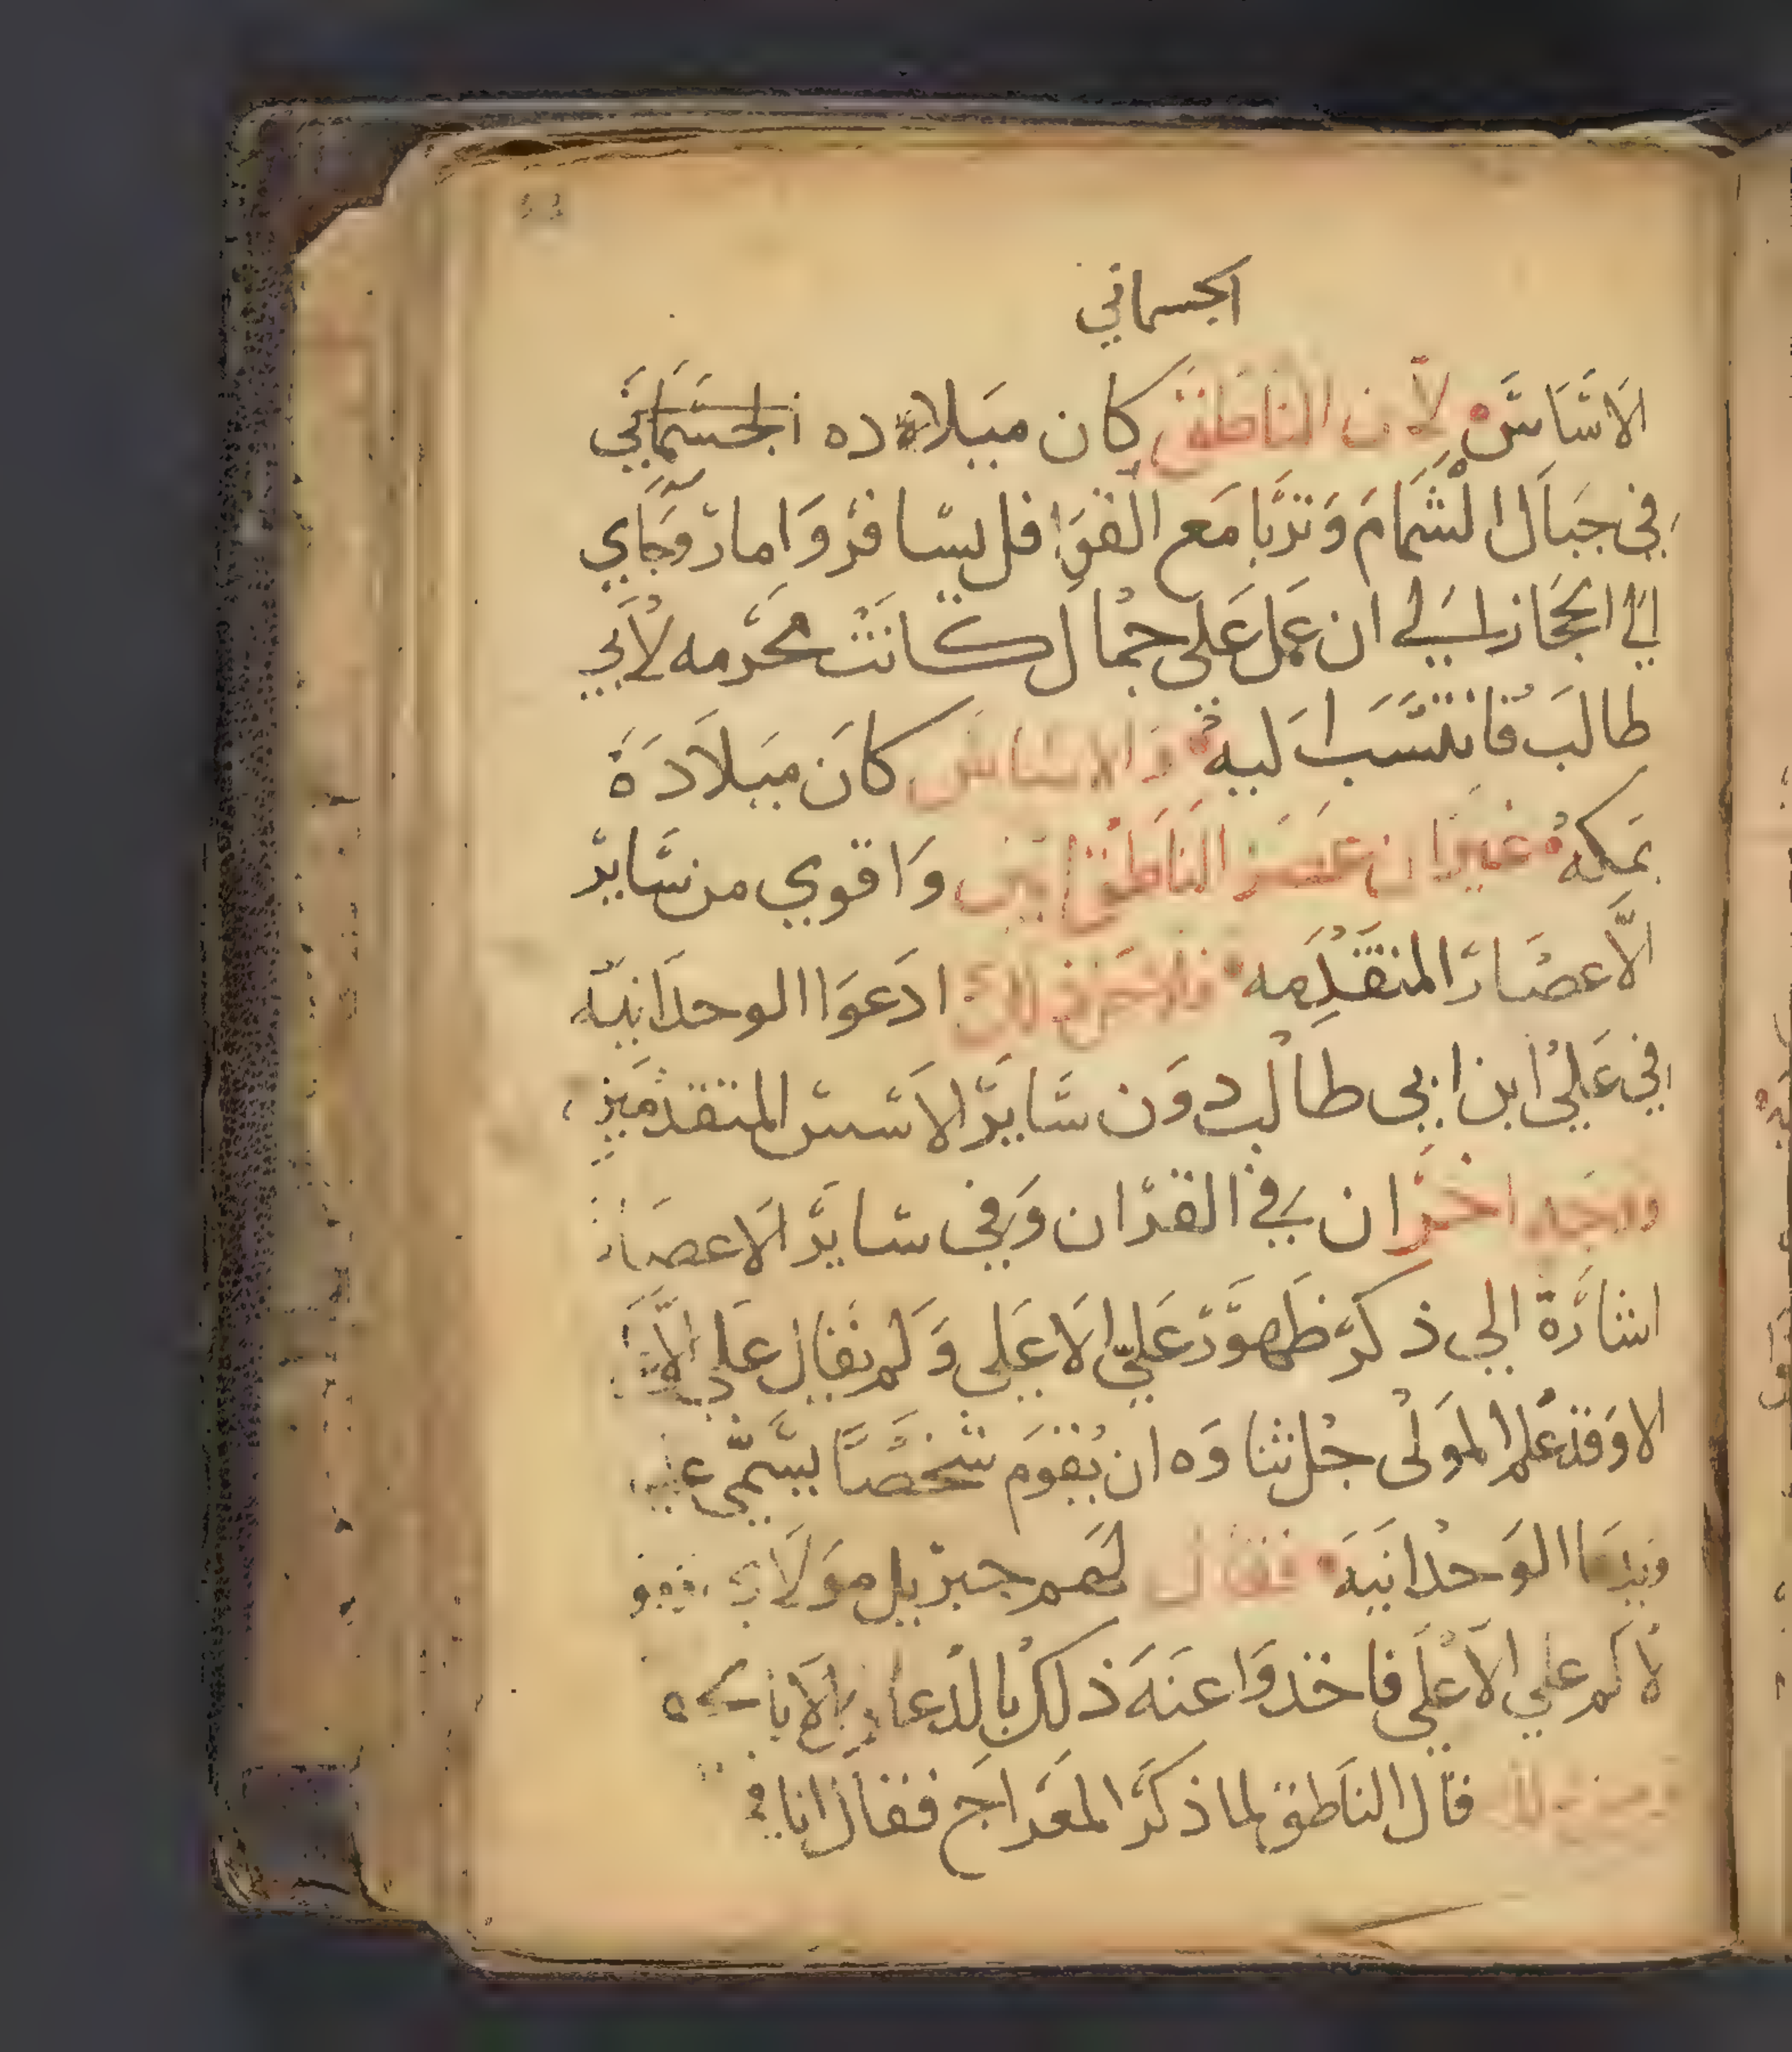 الجسماني
الاساس لان الناطق كان ميلاده الجسماني
في جبال الشمام وتربا مع القوافل يسافر واما روجاي
الي الحجاز الي ان عمل علي جمال كانت محرمه لابي
طالب فانتسب اليه والاساس كان ميلادة
بمكه غير ان عصر الناطق ابين واقوي من ساير
الاعصار المتقدمه فلاجل ذلك ادعوا الوحدانيه
في علي ابن ابي طالب دون ساير الاسس المتقدمين
ووجه اخر ان في القران وفي ساير الاعصار
اشارة الي ذكر ظهور علي الاعلي ولم يقال علي
الا وقد علم المولي جل ثناوه ان يقوم شخصا يسمي
الوحدانيه فقال لهم جبريل مولاي
لاكم علي الاعلي فاخدوا عنه ذلك بالدعا
قال الناطق لما ذكر المعراج فقال انا